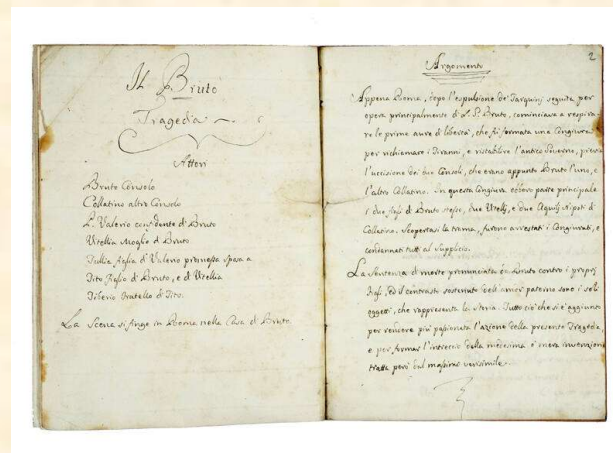 Il Bruto
Tragedia
Attori
Bruto Console
Collatino altro Console
L. Valerio confidente di Bruto
Vitellia Moglie di Bruto
Tullia figlia di Valerio promessa sposa a
Tito figlio di Bruto, e di Vitellia
Tiberio fratello di Tito.
La Scena si finge in Roma nella Casa di Bruto.
2
Argomento
Appena Roma, dopo l'espulsione de' Tarquinj seguita per
opera principalmente di L. Bruto, cominciava a respira-
re le prime aure di libertà, che fu formata una Congiura
per richiamare i Tiranni, e ristabilire l'antico Governo, previa
l'uccisione dei due Consoli, che erano appunto Bruto l'uno, e
l'altro Collatino. in questa Congiura ebbero parte principale
i due figli di Bruto stesso, due Vitellj, e due Aquilj Nipoti di
Collatino. Scopertasi la trama, furono arrestati i Congiurati, e
condannati tutti al Supplicio.
La Sentenza di morte pronunciata da Bruto contro i proprj
figli, ed il contrasto sostenuto dell'amor paterno sono i soli
oggetti, che rappresenta la storia. Tutto ciò che si è aggiunto
per rendere più passionata l'azione della presente Tragedia,
e per formar l'intreccio della medesima è mera invenzione
tratta però dal verisimile.